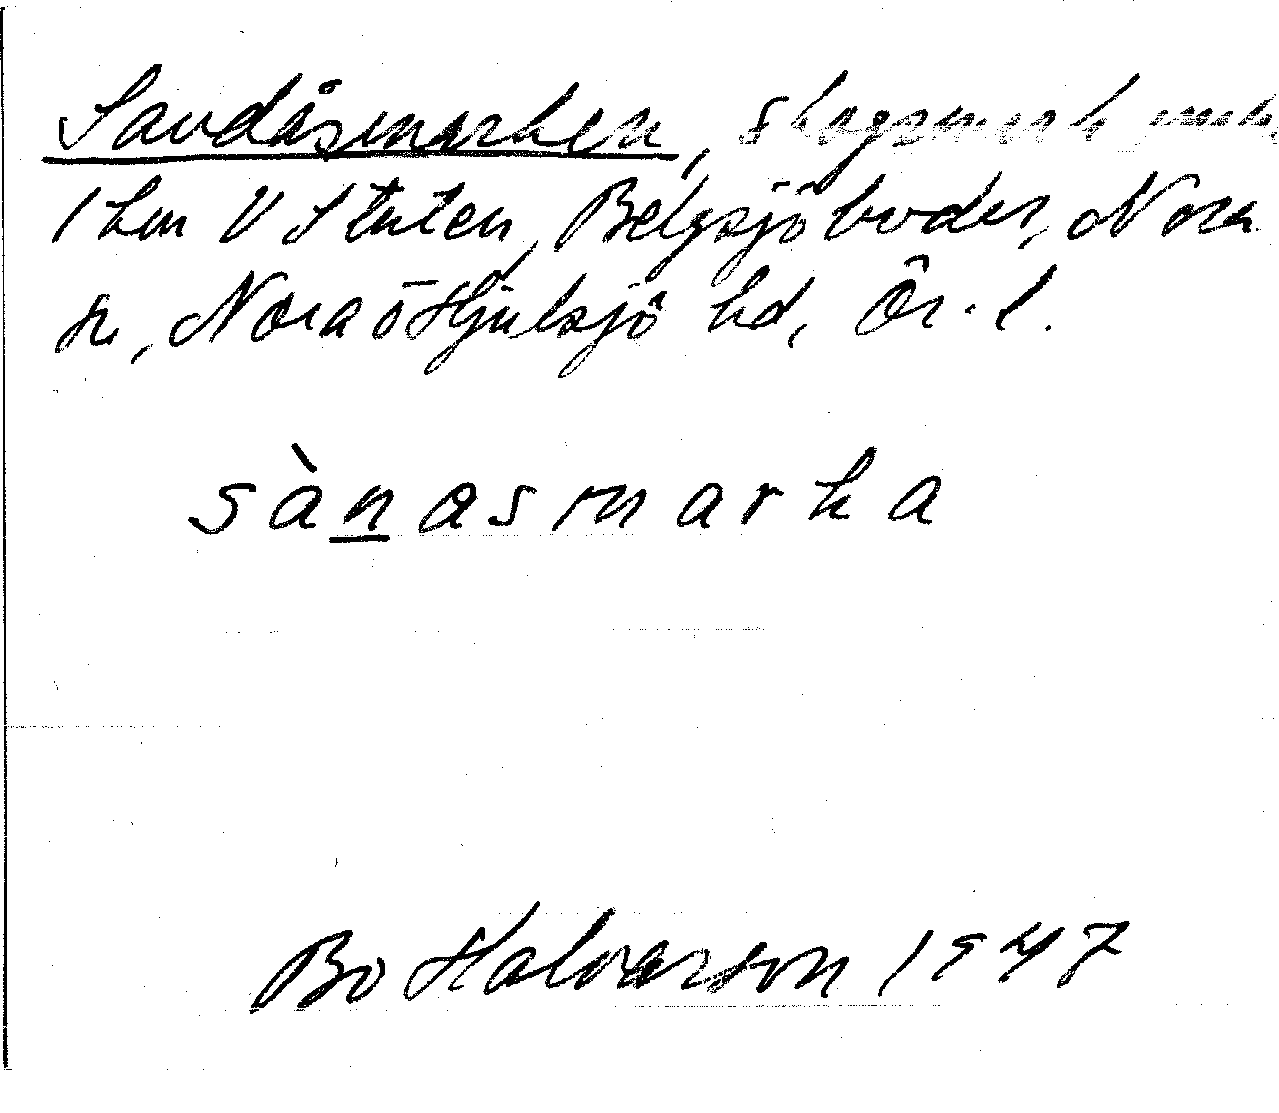 Sandåsmarken, skogsmark
1 km V Stuten, Belgsjöbodar, Nora
sn, Nora o Hjulsjö hd, Ör. l.
sànasmarka
Bo Halvarson 1947